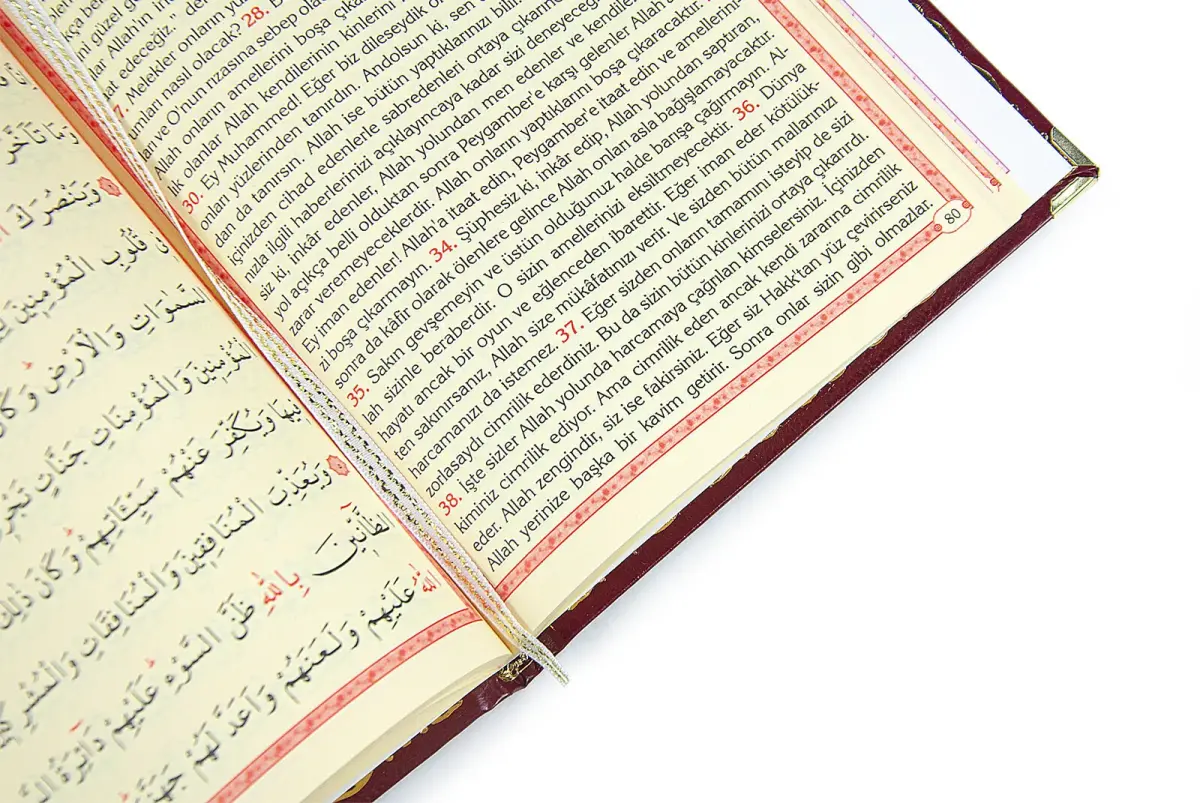 edeceğiz.
7. Melekler onların
umları nasıl olacak? 28.
ve O'nun rızasına sebep
Allah onların amellerini boşa
lik olanlar Allah kendilerinin kinlerini
30. Ey Muhammed! Eğer biz dileseydik
onları yüzlerinden tanırdın. Andolsun ki, sen
dan da tanırsın. Allah ise bütün yaptıklarınızı
içinizden cihad edenlerle sabredenleri ortaya
nızla ilgili haberlerinizi açıklayıncaya kadar sizi
siz ki, inkâr edenler, Allah yolundan men edenler ve
yol açıkça belli olduktan sonra Peygamber'e karşı gelenler
zarar veremeyeceklerdir. Allah onların yaptıklarını boşa çıkaracaktır.
Ey iman edenler! Allah'a itaat edin, Peygamber'e itaat edin ve amellerini-
zi boşa çıkarmayın. 34. Şüphesiz ki, inkâr edip, Allah yolundan saptıran,
sonra da kâfir olarak ölenlere gelince Allah onları asla bağışlamayacaktır.
35. Sakın gevşemeyin ve üstün olduğunuz halde barışa çağırmayın. Al-
lah sizinle beraberdir. O sizin amellerinizi eksiltmeyecektir. 36. Dünya
hayatı ancak bir oyun ve eğlenceden ibarettir. Eğer iman eder kötülük-
ten sakınırsanız, Allah size mükâfatınızı verir. Ve sizden bütün mallarınızı
harcamanızı da istemez. 37. Eğer sizden onların tamamını isteyip de sizi
zorlasaydı cimrilik ederdiniz. Bu da sizin bütün kinlerinizi ortaya çıkarırdı.
38. İşte sizler Allah yolunda harcamaya çağrılan kimselersiniz. İçinizden
kiminiz cimrilik ediyor. Ama cimrilik eden ancak kendi zararına cimrilik
eder. Allah zengindir, siz ise fakirsiniz. Eğer siz Hakk'tan yüz çevirirseniz
Allah yerinize başka bir kavim getirir. Sonra onlar sizin gibi olmazlar.
80
تَاَخَّرَ
وَيَنْصُرَكَ
قُلُوبِ الْمُؤْمِنِينَ
السَّمٰوَاتِ وَالْاَرْضِ
الْمُؤْمِنِينَ وَالْمُؤْمِنَاتِ جَنَّاتٍ
وَيُكَفِّرَ عَنْهُمْ سَيِّئَاتِهِمْ وَكَانَ ذٰلِكَ
وَيُعَذِّبَ الْمُنَافِقِينَ وَالْمُنَافِقَاتِ
الظَّٓانِّينَ بِاللّٰهِ ظَنَّ السَّوْءِ عَلَيْهِمْ دَٓائِرَةُ
اللّٰهُ عَلَيْهِمْ وَلَعَنَهُمْ وَاَعَدَّ لَهُمْ